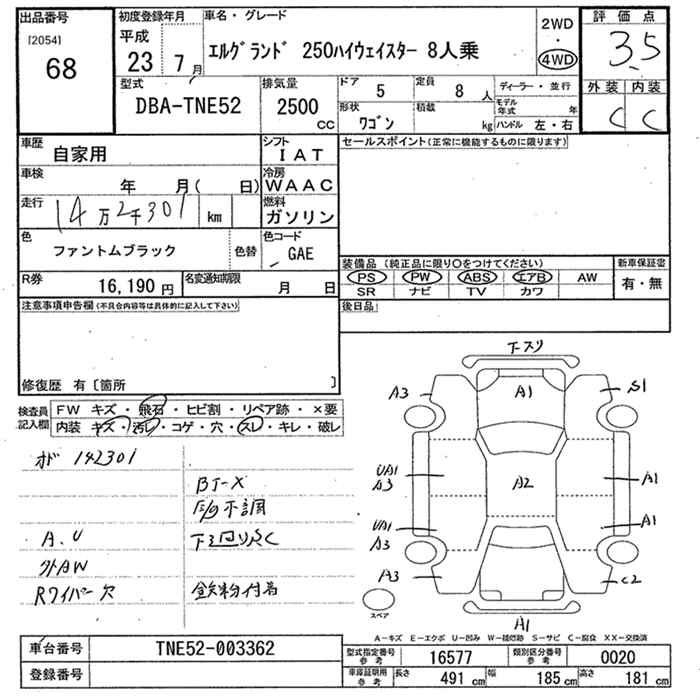 出品番号
[2054]
68
初度登録年月
平成
23 7月
車名・グレード
エルグランド 250ハイウェイスター 8人乗
2WD
・
4WD
評価点
3.5
外装 内装
C C
型式
DBA-TNE52
排気量
2500
CC
ドア 5
定員 8人
ディーラー・並行
形状 ワゴン
積載 kg
モデル年式 年
ハンドル 左・右
車歴
自家用
シフト
IAT
セールスポイント(正常に機能するものに限ります)
車検
年 月( 日)
冷房
WAAC
走行
14万2千301 km
燃料
ガソリン
色
ファントムブラック
色替
色コード
GAE
装備品 (純正品に限り○をつけてください)
新車保証書
PS PW ABS エアB AW
SR ナビ TV カワ
有・無
R券
16,190円
名変通知期限
月 日
後日品
注意事項申告欄(不具合内容等は具体的に記入して下さい)
修復歴 有〔箇所 〕
検査員記入欄
FW キズ・飛石・ヒビ割・リペア跡・×要
内装 キズ・汚レ・コゲ・穴・スレ・キレ・破レ
メーター 142301
BT-X
不調
A.U
下廻り
外AW
Rワイパー欠
鉄粉付着
下スリ
A3
A1
S1
UA1
A3
A2
A1
UA1
A3
A1
A3
C2
A1
スペア
A-キズ E-エクボ U-凹み W-補修跡 S-サビ C-腐食 XX-交換済
車台番号
TNE52-003362
登録番号
型式指定番号 参考
16577
類別区分番号 参考
0020
車庫証明用 参考
長さ 491 cm
幅 185 cm
高さ 181 cm